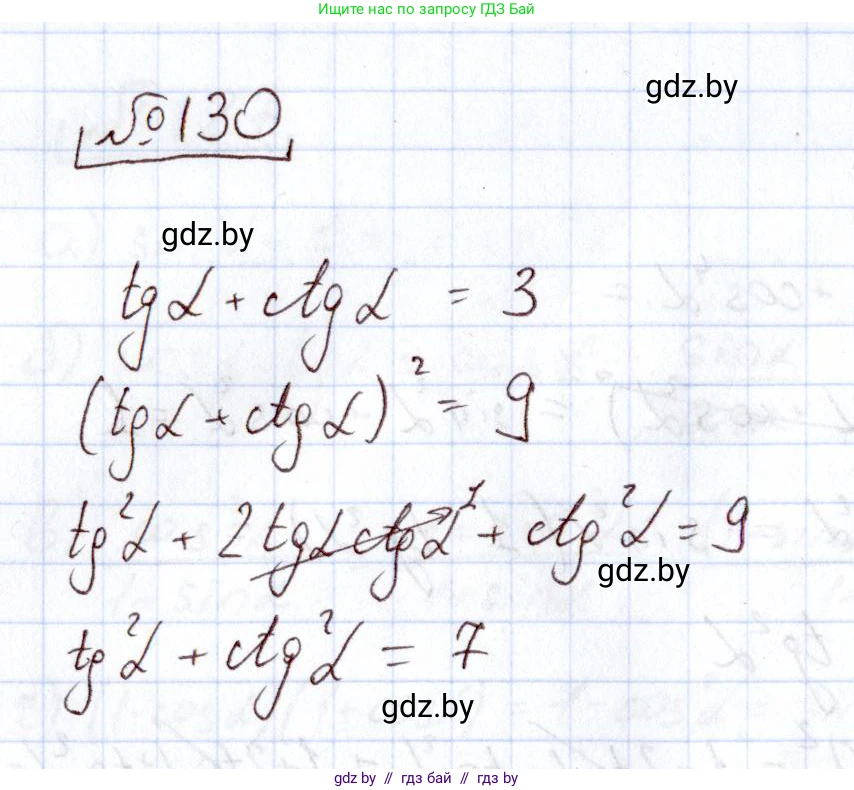 Ищите нас по запросу ГДЗ Бай
gdz.by
№130
gdz.by
tg α + ctg α = 3
(tg α + ctg α)² = 9
tg²α + 2 tg α ctg α ¹ + ctg²α = 9
gdz.by
tg²α + ctg²α = 7
gdz.by
gdz by // гдз бай // гдз by